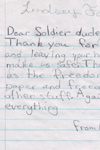 Lindsay
Dear Soldier dude
Thank you for
and leaving your h
make us safe. Th
as the freedom
paper and free
other stuff. Aga
everything
from